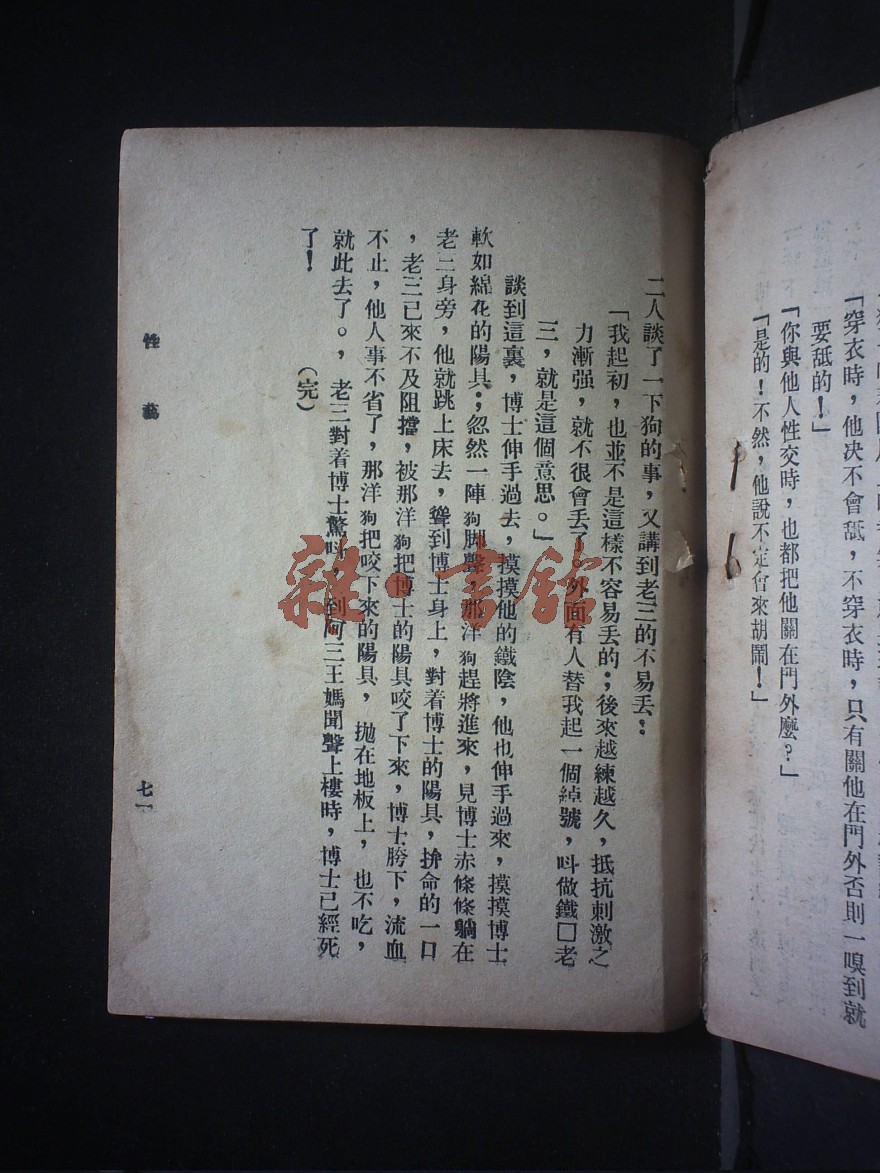 「穿衣時，他決不會舐，不穿衣時，只有關他在門外否則一嗅到就
要舐的！」
「你與他人性交時，也都把他關在門外麼？」
「是的！不然，他說不定會來胡鬧！」
二人談了一下狗的事，又講到老三的不易丟：
「我起初，也並不是這樣不容易丟的；後來越練越久，抵抗刺激之
力漸强，就不很會丟了。外面有人替我起一個綽號，呌做鐵□老
三，就是這個意思。」
談到這裏，博士伸手過去，摸摸他的鐵陰，他也伸手過來，摸摸博士
軟如綿花的陽具；忽然一陣狗脚聲，那洋狗趕將進來，見博士赤條條躺在
老三身旁，他就跳上床去，聳到博士身上，對着博士的陽具，拚命的一口
，老三已來不及阻擋，被那洋狗把博士的陽具咬了下來，博士胯下，流血
不止，他人事不省了，那洋狗把咬下來的陽具，抛在地板上，也不吃，
就此去了。，老三對着博士驚呌，到阿三王媽聞聲上樓時，博士已經死
了！
（完）
性藝
七一
雜·書館